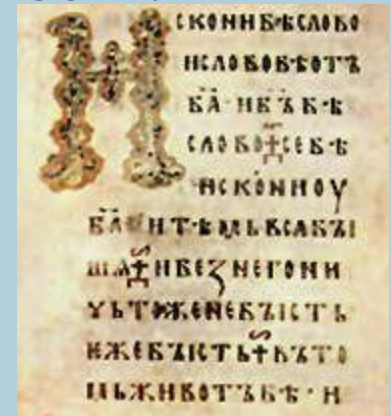 И СКОНИБѢСЛОВО
ИСЛОВОБѢОТЪ
БА҃ · И БЪ Б Ѣ
СЛОВО СЕ Б Ѣ
ИСКОНИ ОУ
БА҃ И ТѢМЬ ВСА БЪІ
ШѦ И БЕЗ НЕГО НИ
ЧЬТОЖЕ НЕ БЪІСТЬ
ИЖЕ БЪІСТЬ ВЪ ТО
МЬ ЖИВОТЪ БѢ · И